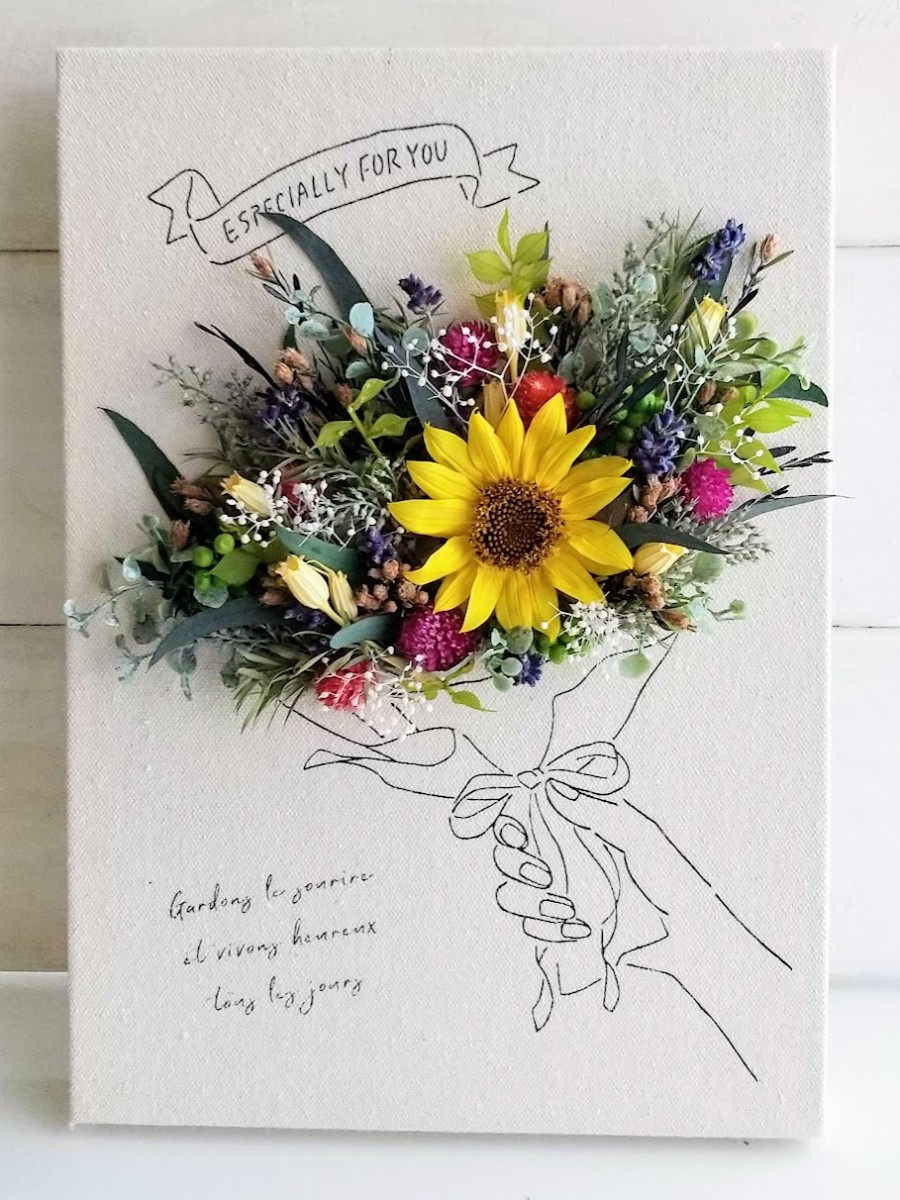 ESPECIALLY FOR YOU
Gardons le sourire
et vivons heureux
tous les jours